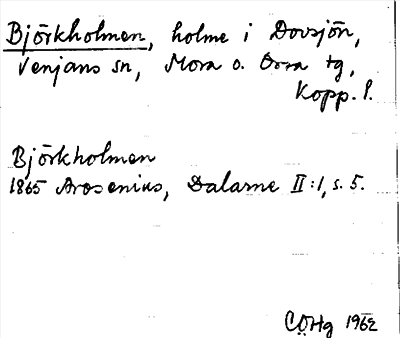 Björkholmen, holme i Dovsjön,
Venjans sn, Mora o. Orsa tg,
Kopp. l.
Björkholmen
1865 Arosenius, Dalarne II:1, s. 5.
CÖHg 1962